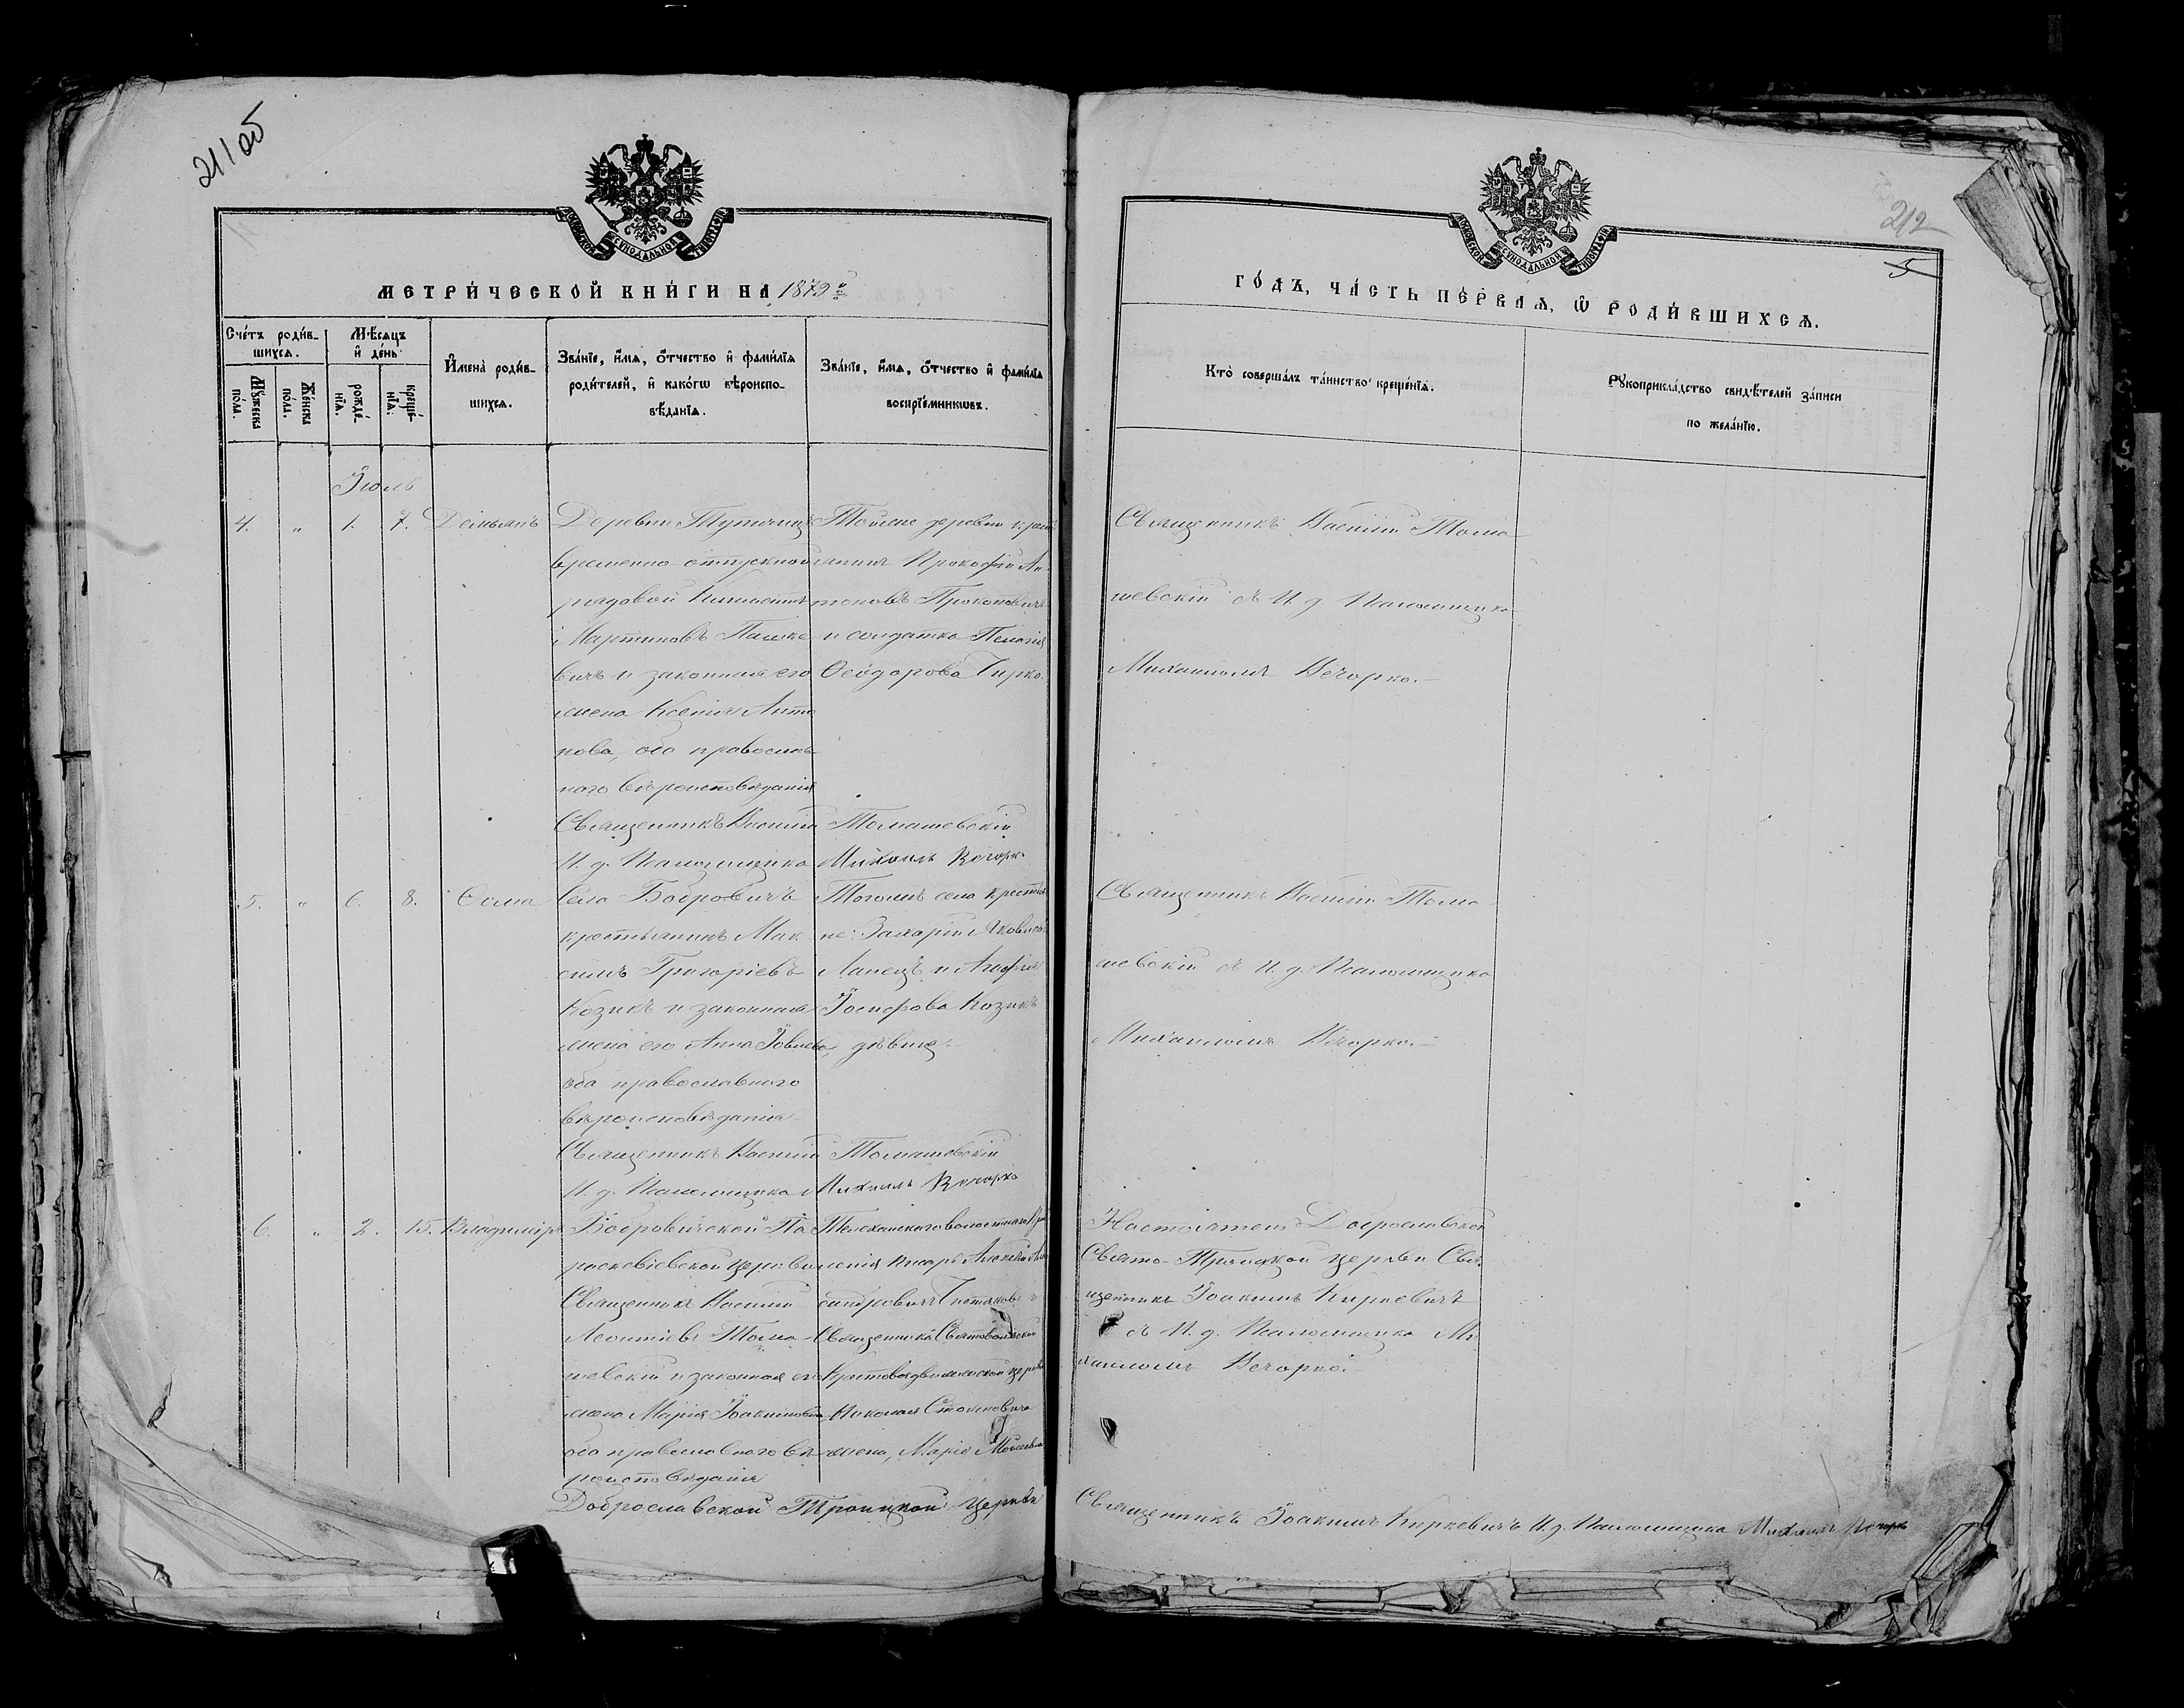 211 об
МОСКОВСКОЙ СУНОДАЛЬНОЙ ТИПОГРАФІИ
МЕТРИ́ЧЕСКОЙ КНИ́ГИ НА 1879 й
Сче́тъ роди́вшихся.
Мѣ́сяцъ и҆ де́нь
И҆мена̀ роди́вшихся.
Зва́нїе, и҆́мя, ѻ҆́тчество и҆ фами́лїя родителей, и҆ како́гѡ вѣроисповѣ́данїя.
Зва́нїе, и҆́мя, ѻ҆́тчество и҆ фами́лїя воспрїе́мникѡвъ.
Му́жеска по́ла.
Же́нска по́ла.
рожде́нїя.
креще́нїя:
Іюль
4. " 1. 7. Деміянъ
Деревни Тупичицъ
временно-отпускной
рядовой
Мартиновъ Пашке
вичъ и законная его
жена Ксенія Анто
нова, оба православ
ного вѣроисповѣданія
Тойже деревни крест
янинъ Прокофій Ан
тоновъ Прокоповичъ
и солдатка Пелагія
Ѳеодорова Гирко.
Священникъ Василій Томашевскій
И. д. Псаломщика Михаилъ Вечорко
5. " 6. 8. Ѳома
Села Бобровичъ
крестьянинъ Мак
симъ Григоріевъ
Козикъ и законная
жена его Анна Іовлева
оба православного
вѣроисповѣданія
Тогожъ села крестья
не: Захарій Яковлевъ
Лапецъ и Агафія
Іосифова Козикъ
дѣвица.
Священникъ Василій Томашевскій
И. д. Псаломщика Михаилъ Вечорко
6. " 2. 15. Владиміръ
Бобровичской Па
раскевіевской церкви
Священникъ Василій
Леонтіевъ Тома
шевскій и законная его
жена Марія Іоакимовна
оба православного вѣ
роисповѣданія
Телеханского волостного Пра
вленія писарь Алексѣй Алек
сандровичъ
Священника Святовольской
Крестовоздвиженской церкви
Николая
жена, Марія
Доброславской Троицкой церкви
212
5
МОСКОВСКОЙ СУНОДАЛЬНОЙ ТИПОГРАФІИ
ГО́ДЪ, ЧА́СТЬ ПЕ́РВАЯ, Ѡ҆ РОДИ́ВШИХСЯ.
Кто̀ соверша́лъ та́инство креще́нїя.
Рꙋкоприкла́дство свидѣ́телей за́писи по жела́нїю.
Священникъ Василій Тома
шевскій съ И. д. Псаломщика
Михаиломъ Вечорко.
Священникъ Василій Тома
шевскій съ И. д. Псаломщика
Михаиломъ Вечорко.
Настоятель Доброславской
Свято-Троицкой церкви Свя
щенникъ Іоакимъ Киркевичъ
съ И. д. Псаломщика Ми
хаиломъ Вечорко.
Священникъ Іоакимъ Киркевичъ И. д. Псаломщика Михаилъ Вечорко